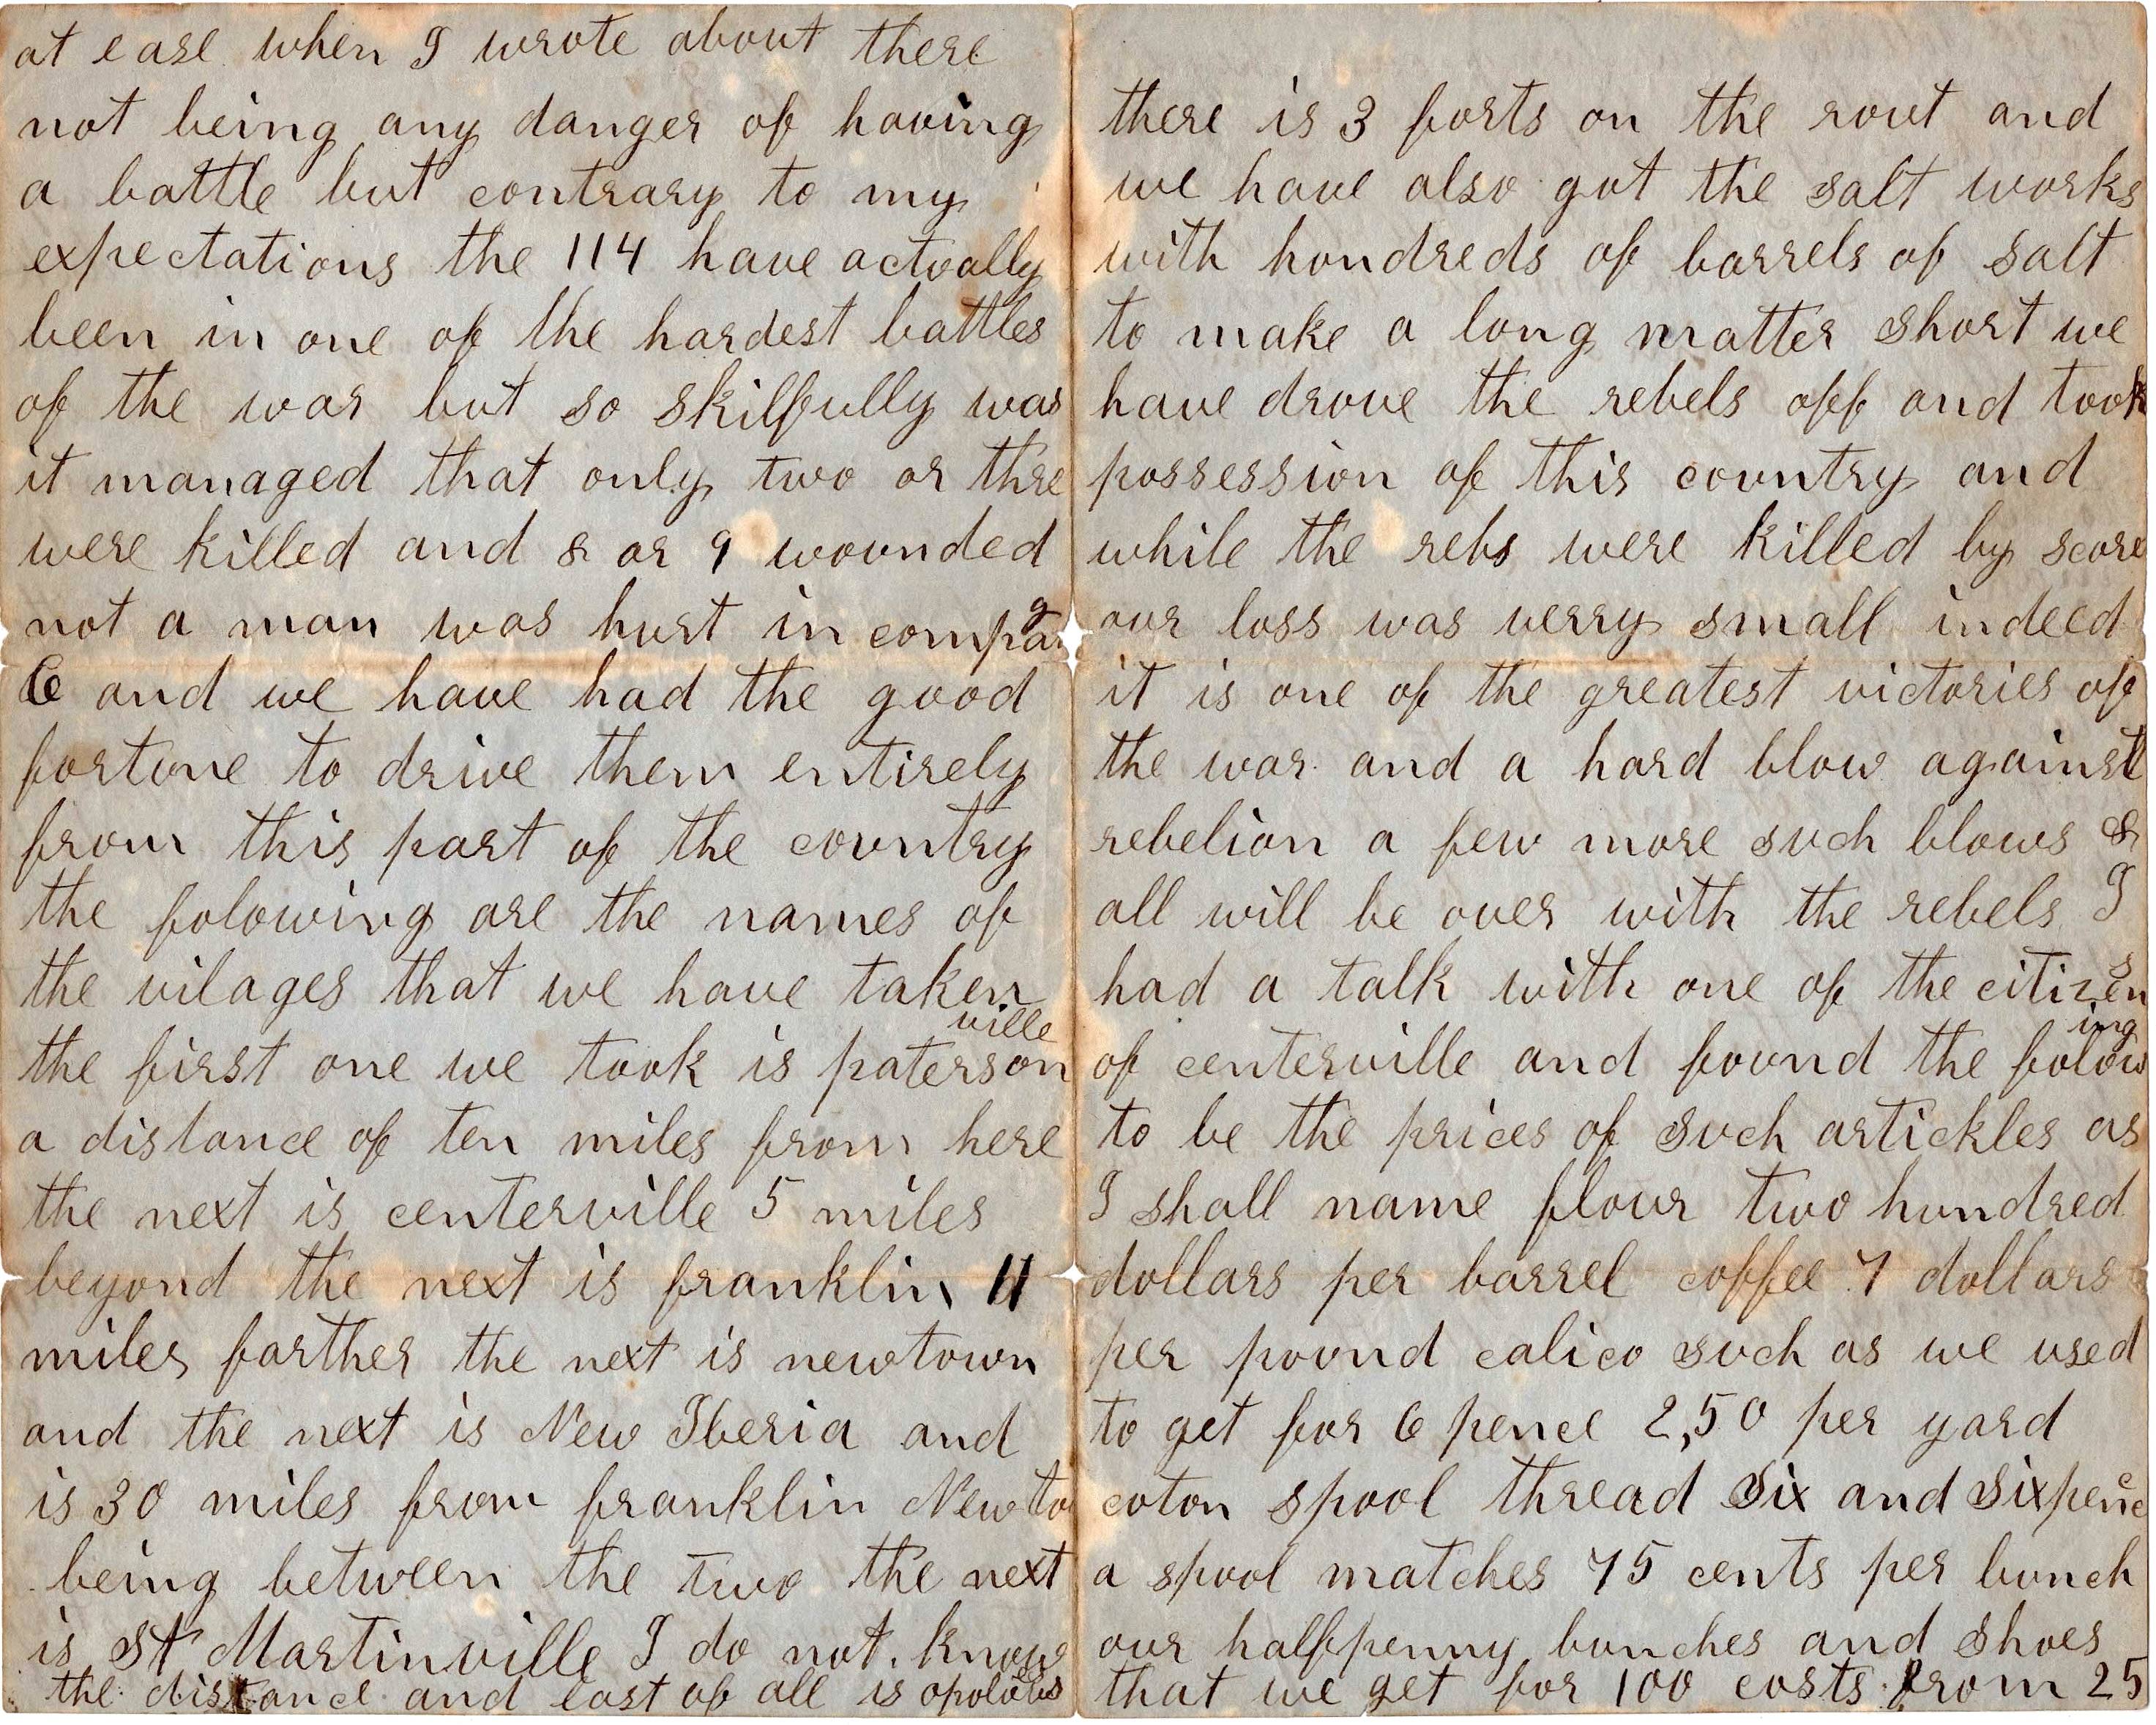 at ease when I wrote about there
not being any danger of having
a battle but contrary to my
expectations the 114 have actually
been in one of the hardest battles
of the war but so skilfully was
it managed that only two or thre
were killed and 8 or 9 wounded
not a man was hurt in company
G and we have had the good
fortune to drive them entirely
from this part of the country
the folowing are the names of
the vilages that we have taken
the first one we took is patersonville
a distance of ten miles from here
the next is centerville 5 miles
beyond the next is franklin 11
miles farther the next is newtown
and the next is New Iberia and
is 30 miles from franklin Newto
being between the two the next
is St Martinville I do not know
the distance and last of all is opolous
there is 3 forts on the rout and
we have also got the salt works
with hundreds of barrels of salt
to make a long matter short we
have drove the rebels off and took
possession of this country and
while the rebs were killed by score
our loss was verry small indeed
it is one of the greatest victories of
the war and a hard blow against
rebelion a few more such blows &
all will be over with the rebels I
had a talk with one of the citizens
of centerville and found the folowing
to be the prices of such artickles as
I shall name flour two hundred
dollars per barrel coffee 7 dollars
per pound calico such as we used
to get for 6 pence 2,50 per yard
coton spool thread six and sixpence
a spool matches 75 cents per bunch
our halfpenny bunches and shoes
that we get for 100 costs from 25